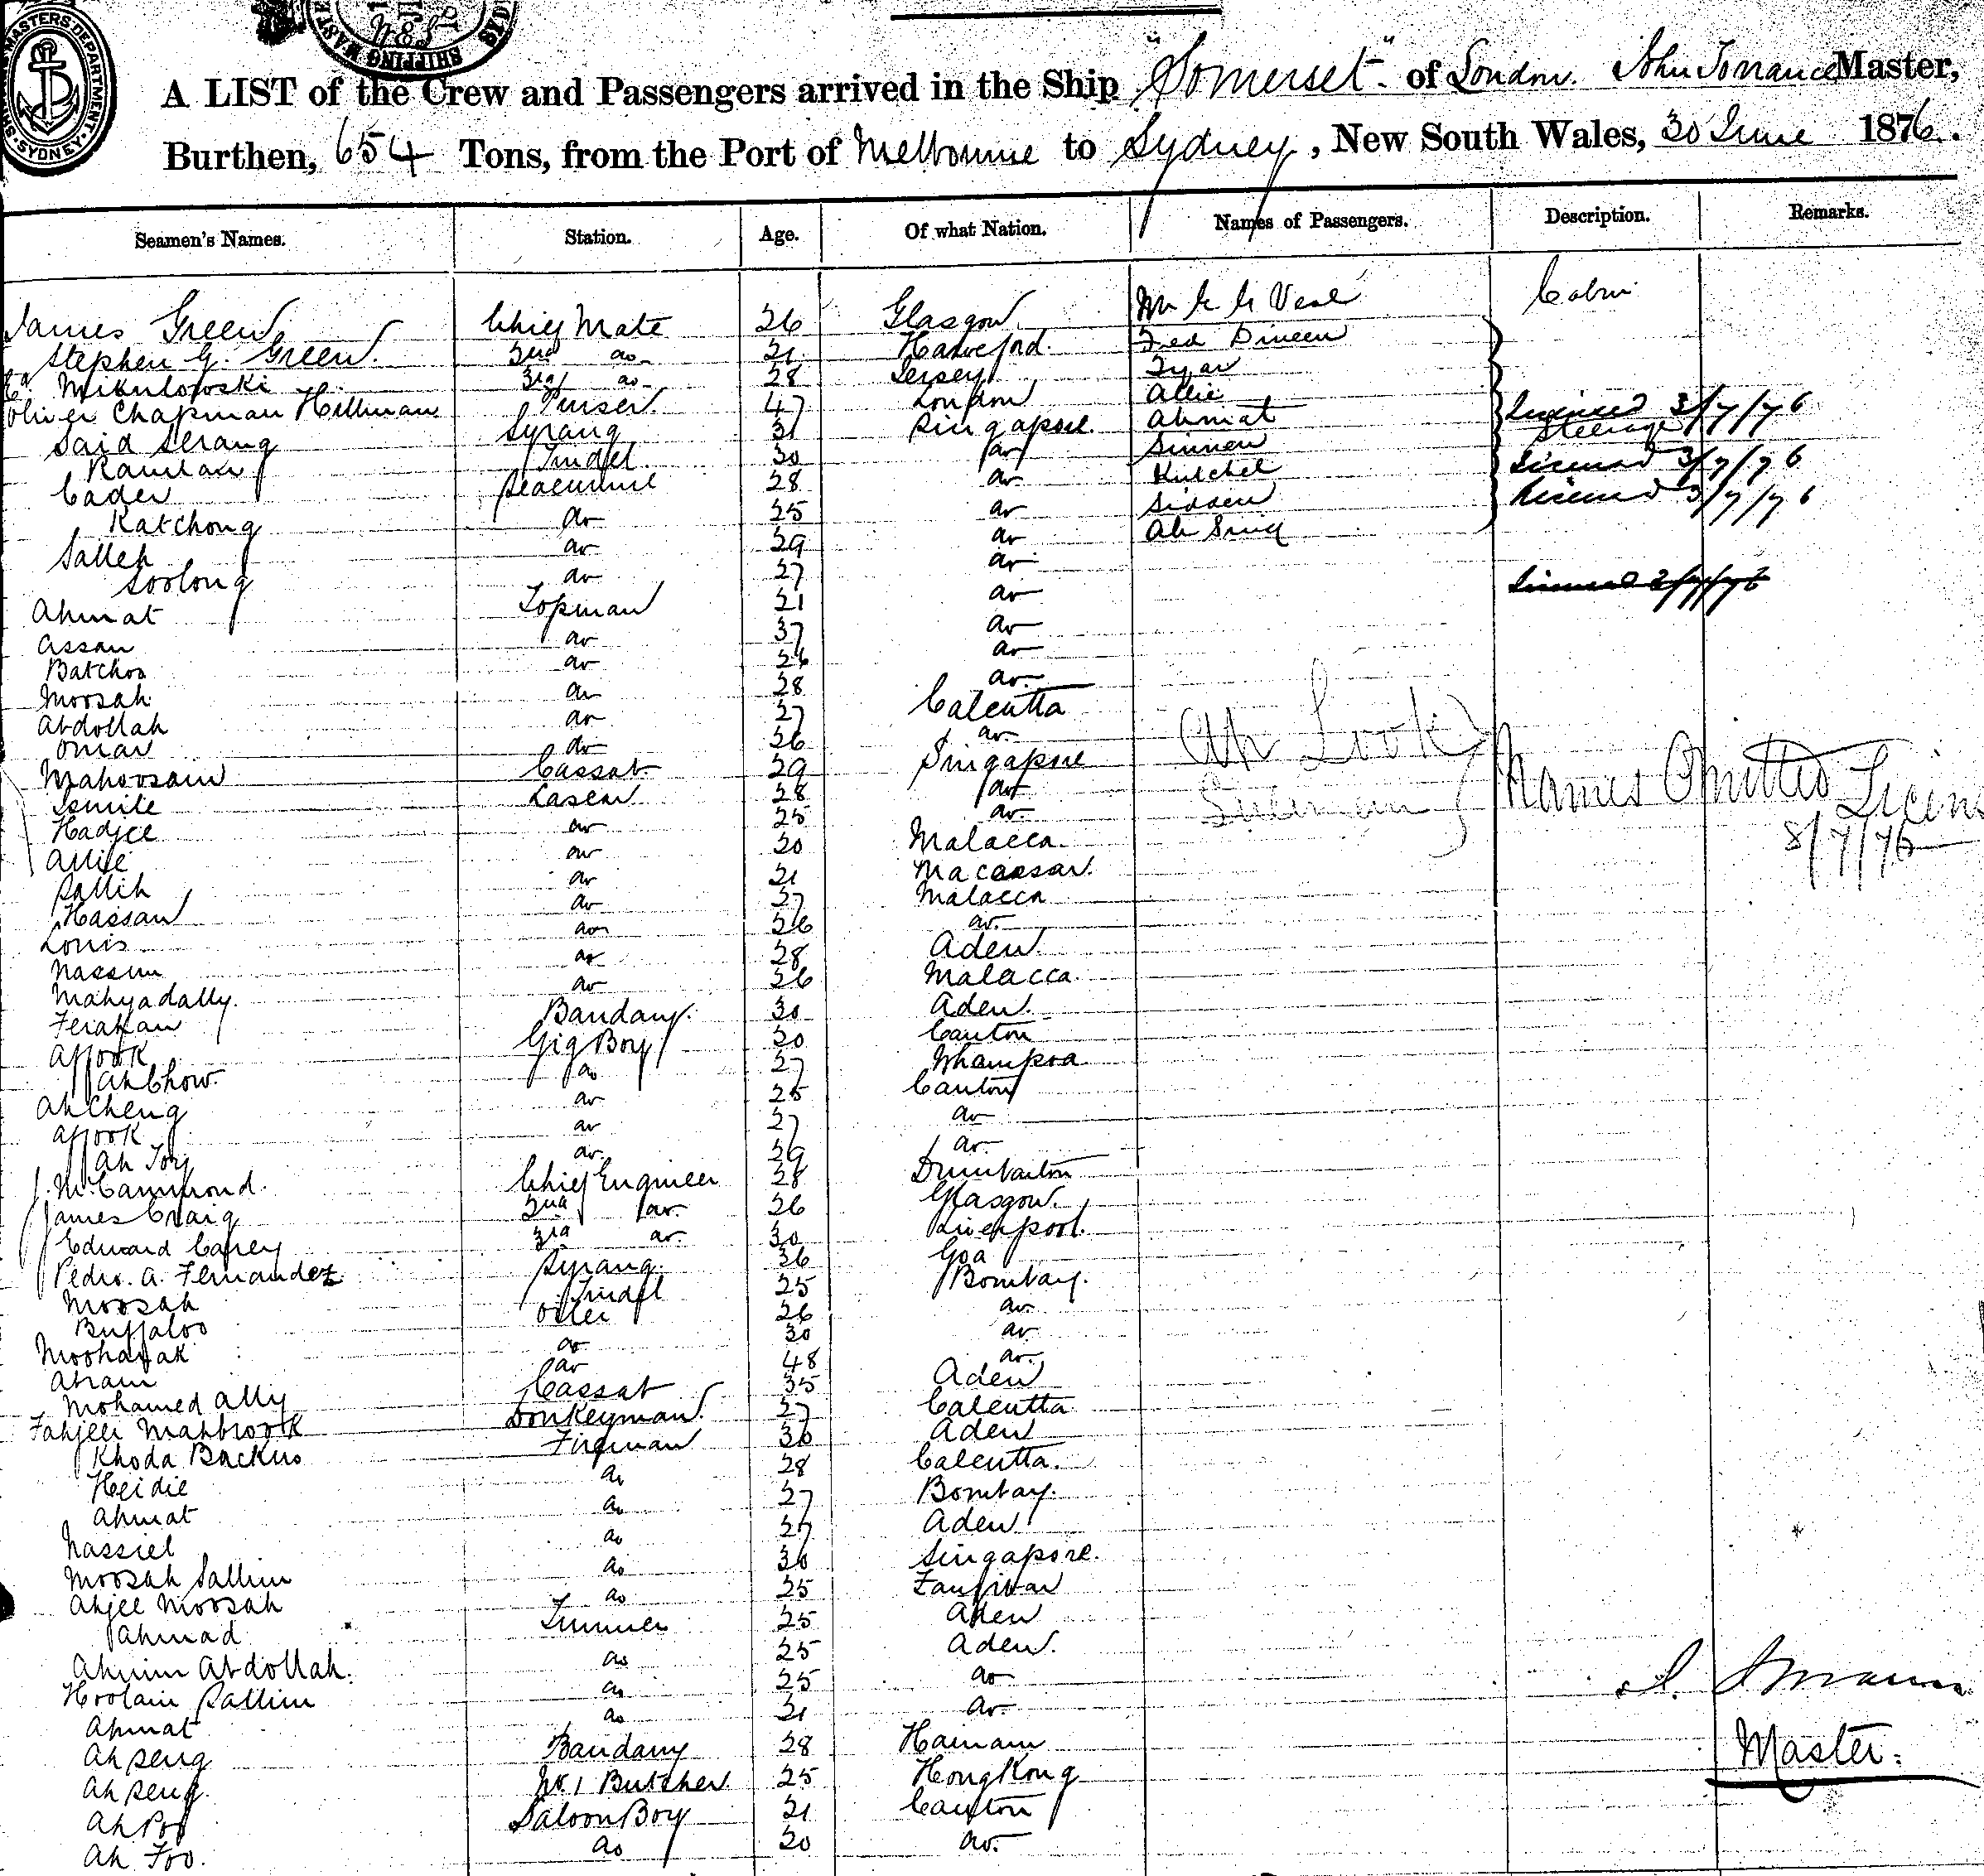 SHIPPING MASTERS DEPARTMENT. SYDNEY.
A LIST of the Crew and Passengers arrived in the Ship "Somerset" of London. John Torrance Master,
Burthen, 654 Tons, from the Port of Melbourne to Sydney, New South Wales, 30 June 1876.
Seamen's Names. Station. Age. Of what Nation. Names of Passengers. Description. Remarks.
James Green Chief Mate 26 Glasgow Cabin
Stephen G. Green 2nd do 21 Fred Dineen
Mikulowski 3rd do 28 Jersey
Oliver Chapman Hillman Purser 47 London Allie
Said Serang Syrang 31 Singapore Ahmat
Ramlan Tindel 30 do Sinnen
Cader Seacunnie 28 do Kutchel
Katchong do 25 do Sidden
Salleh do 29 do Ah Sing
Soolong do 27 do
Ahmat Topman 21 do
Assan do 37 do
Batchoo do 26 do
Moosah do 28 do
Abdollah do 27 Calcutta
Omar do 26 do
Mahoosain Cassab 29 Singapore
Ismile Lascar 28 do
Hadjee do 25 do
Allie do 20 Malacca
Sallih do 21 Macassar
Hassan do 27 Malacca
Louis do 26 do
Nassim do 28 Aden
Mahyadally do 26 Malacca
Ferahan Bandany 30 Aden
Affook Gig Boy 20 Canton
Ah Chow do 27 Whampoa
Ah Cheng do 25 Canton
Affook do 27 do
Ah Toy do 29 do
J. McCammond Chief Engineer 28 Dumbarton
James Craig 2nd do 26 Glasgow
Edward Carey 3rd do 30 Liverpool
Pedro. A. Fernandez Syrang 36 Goa
Moosah Tindel 25 Bombay
Buffaloo Oiler 26 do
Moohanak do 30 do
Aham do 48 do
Mohamed Ally Cassab 35 Aden
Fahjee Mahbrook Donkeyman 27 Calcutta
Khoda Backus Fireman 30 Aden
Heidie do 28 Calcutta
Ahmat do 27 Bombay
Nassiel do 27 Aden
Moosah Sallim do 30 Singapore
Ahjee Moosah do 25 Zanzibar
Ahmad Trimmer 25 Aden
Ahmim Abdollah do 25 Aden
Hoolain Sallim do 25 do
Ahmat do 21 do
Ah Seng Bandany 28 Hainam
Ah Seng No. 1 Butcher 25 Hong Kong
Ah Poy Saloon Boy 21 Canton
Ah Foo do 20 do
Licensed 3/7/76
Steerage
Licensed 3/7/76
Licensed 3/7/76
Ah Look
Names Omitted
8/7/76
Master.